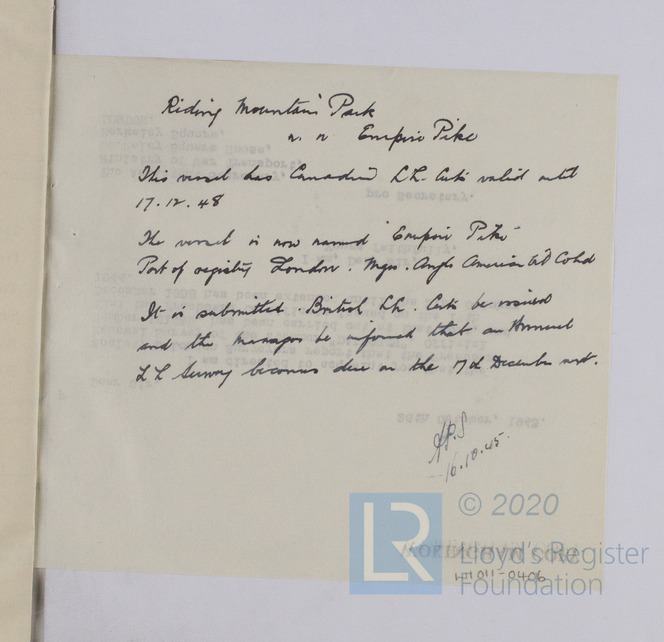 Riding Mountain Park
n. n Empire Pike
This vessel has Canadian L.L. Certs valid until
17.12.48
The vessel is now named "Empire Pike"
Port of registry London. Mgrs. Anglo American Oil Co Ltd
It is submitted. British L.L. Certs be issued
and the managers be informed that an Annual
L L Survey becomes due on the 17th December next.
16.10.45.
© 2020
LR
Lloyd's Register
Foundation
HH011-0406